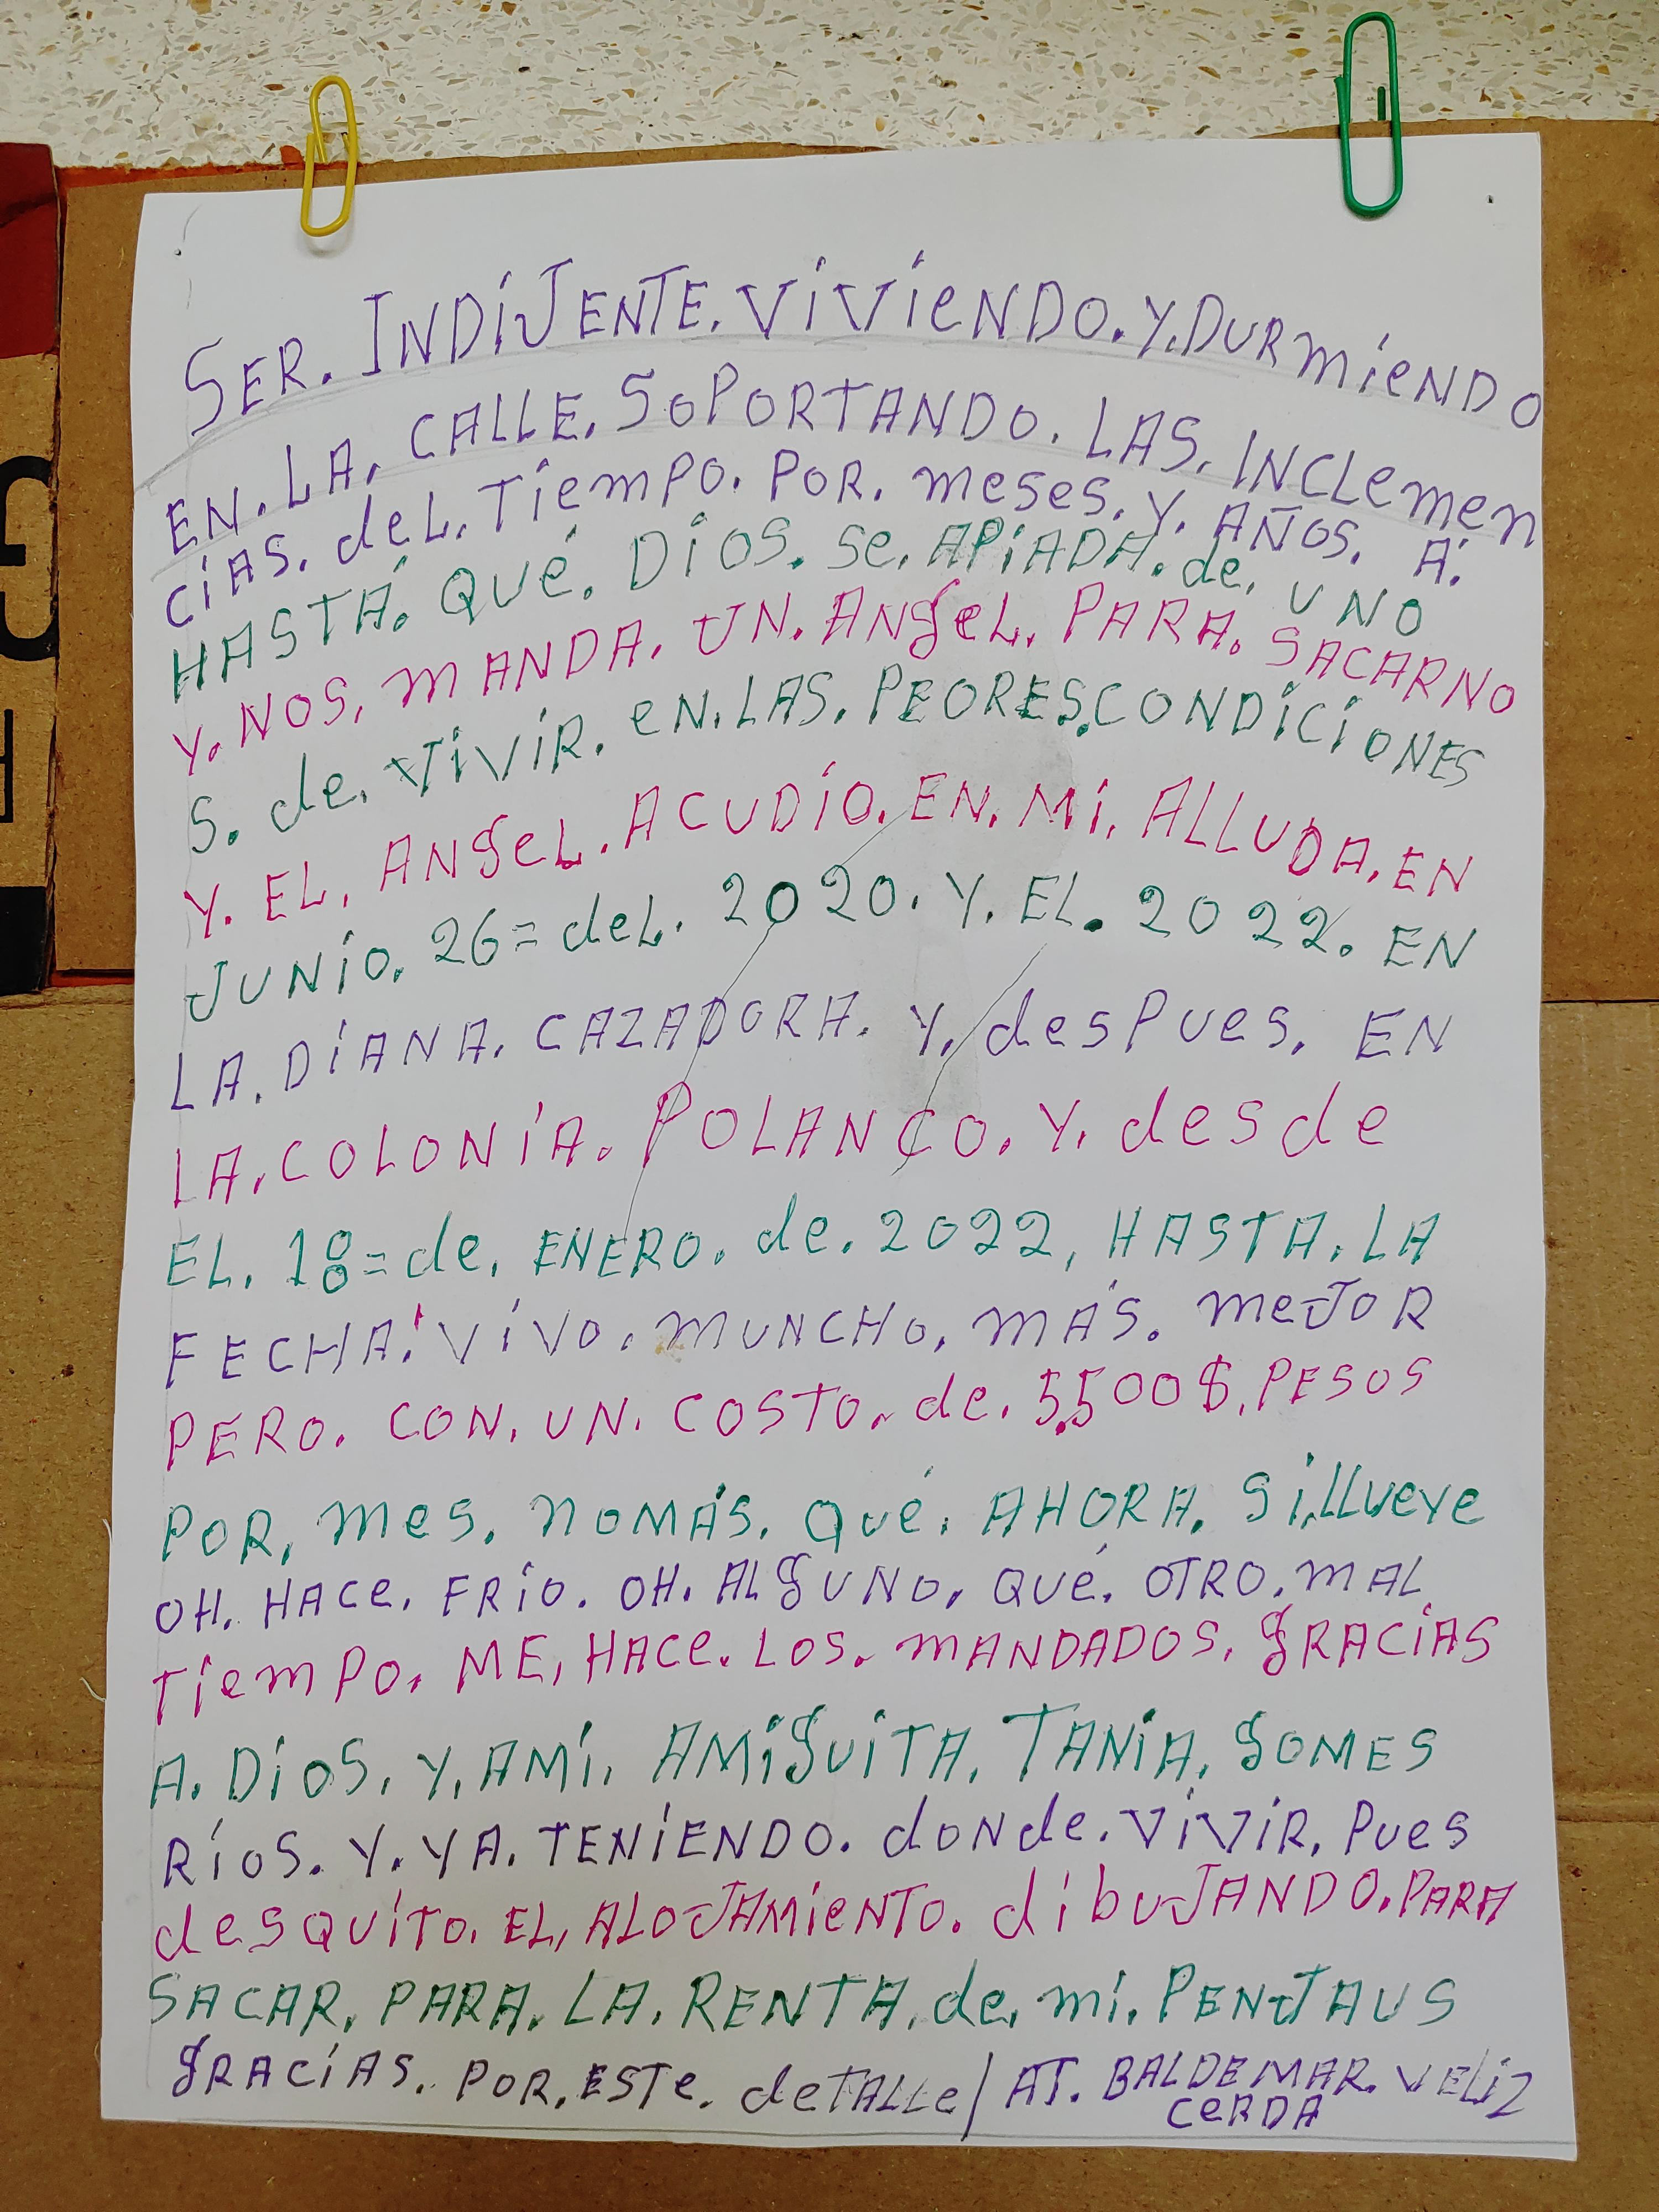 SER. INDIJENTE. ViViENDO. Y. DURMiENDO
EN. LA. CALLE. SOPORTANDO. LAS. INCLEMEN
CiAS. deL. TiemPO. POR. meses. Y. AÑOS. Á.
HASTÁ. QUÉ. DiOS. se. APiADA. de. UNO
Y. NOS. MANDA. UN. ANgeL. PARA. SACARNO
S. de. ViViR. eN. LAS. PEORES. CONDiCiONES
Y. EL. ANgeL. ACUDÍO. EN. Mi. ALLUDA. EN
JUNiO. 26= deL. 2020. Y. EL. 2022. EN
LA. DiANA. CAZADORA. Y. desPUes. EN
LA. COLONiA. POLANCO. Y. desde
EL. 18= de. ENERO. de. 2022, HASTA. LA
FECHA! ViVO. MUNCHO. MÁS. MeJOR
PERO. CON. UN. COSTO. de. 5,500$. PESOS
POR. mes. NOMÁS. QUÉ. AHORA. Si. LLUeVe
OH. HACe. FRiO. OH. ALgUNO. QUÉ. OTRO. MAL
TiemPO. ME. HACe. LOS. MANDADOS. gRACiAS
A. DiOS. Y. AMi. AMiguiTA. TANiA. gOMES
RÍOS. Y. YA. TENiENDO. doNde. ViViR. PUes
desQUiTO. EL. ALOJAMieNTO. dibuJANDO. PARA
SACAR. PARA. LA. RENTA. de. mi. PENJAUS
gRACiAS. POR. ESTe. deTALLe / AT. BALDEMAR. VELiZ
CeRDA